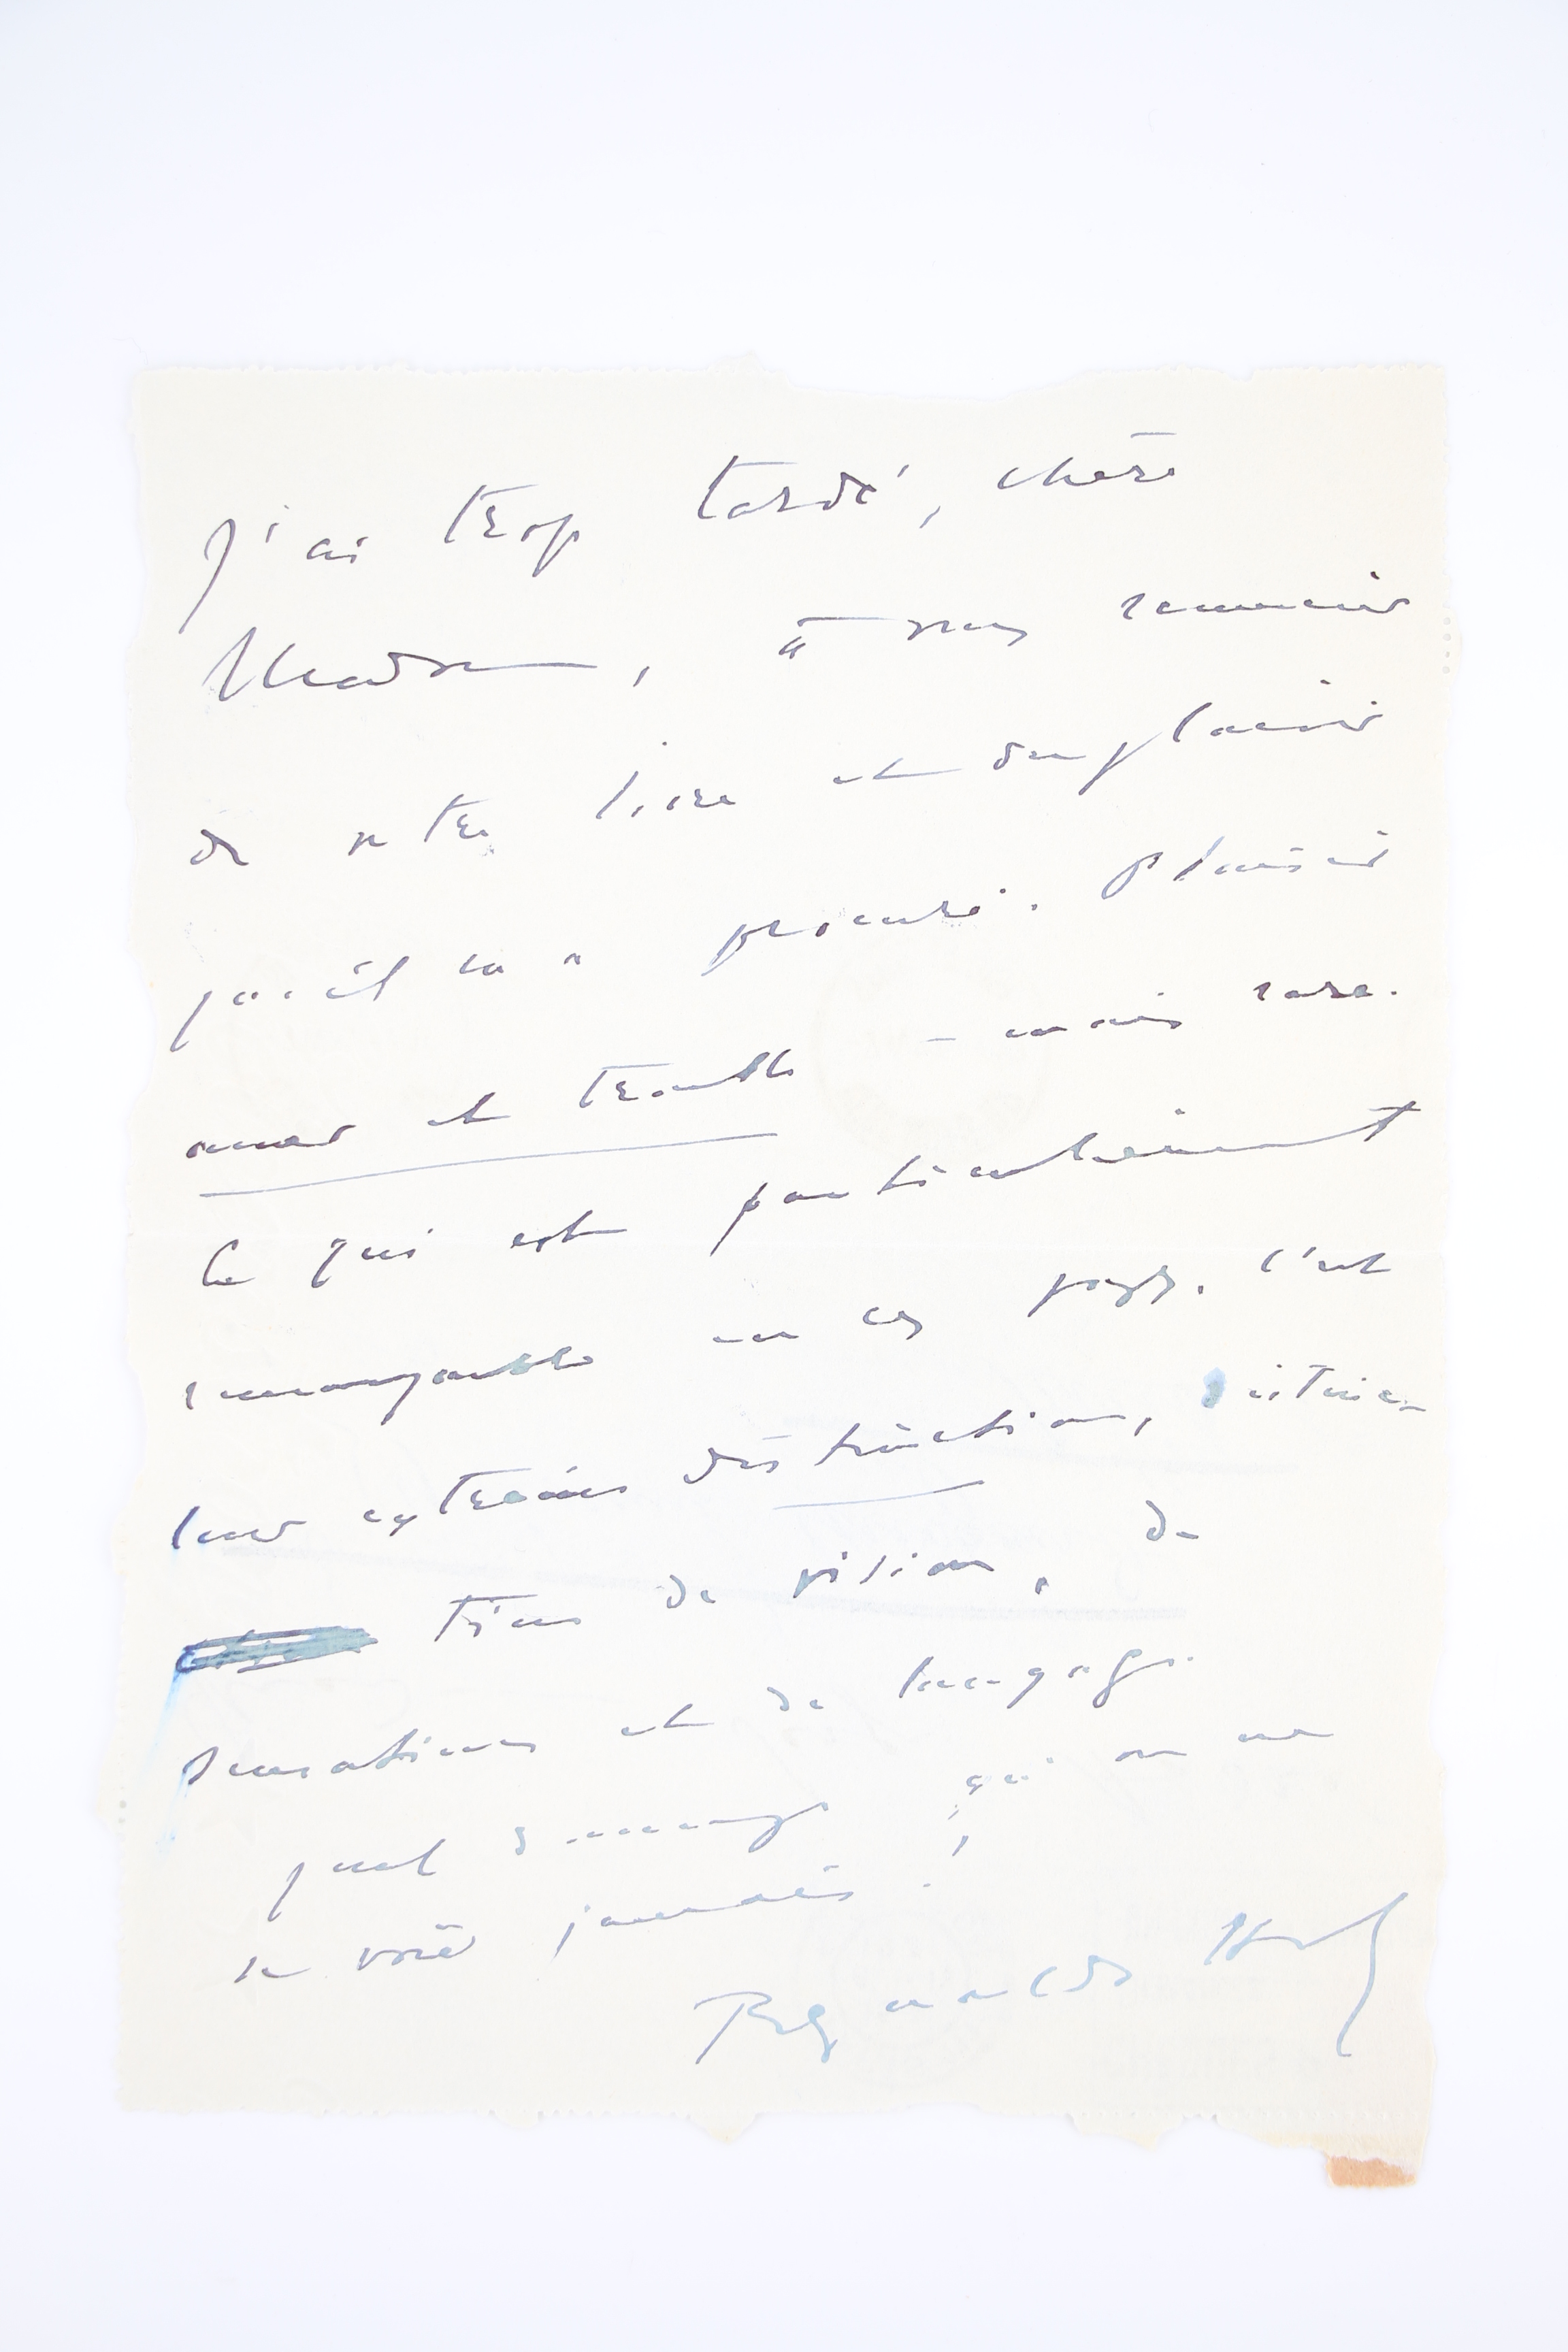 J'ai trop tardé, chère
Madame, à vous remercier
de votre livre et du plaisir
qu'il m'a procuré. Plaisir
amer et trouble – mais rare.
Ce qui est particulièrement
remarquable en ces pages, c'est
leur extrême distinction,
de vision, de
sensations et de langage.
quel dommage qu'on ne
se voie jamais !
Reynaldo Hahn